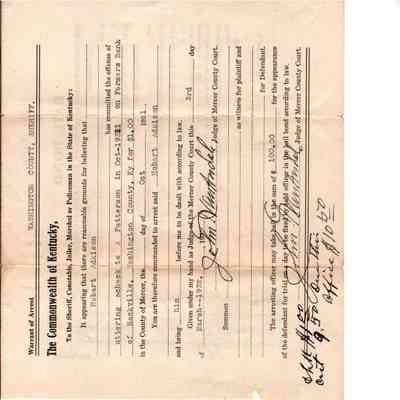 Warrant of Arrest WASHINGTON COUNTY, SHERIFF.
The Commonwealth of Kentucky,
To the Sheriff, Constable, Jailer, Marshal or Policeman in the State of Kentucky:
It appearing that there are reasonable grounds for believing that
Hobart Adkison
has committed the offense of
uttering check to J Patterson in Oct-1921 on Farmers Bank
of Mackville, Washington County, Ky for $1.00
in the County of Mercer, the day of Oct 1921.
You are therefore commanded to arrest said Hobart Adkison
and bring him before me to be dealt with according to law.
Given under my hand as Judge of the Mercer County Court this 3rd day
of March--1922,
Judge of Mercer County Court.
Summon
as witness for plaintiff and
for Defendant.
The arresting officer may take bail in the sum of $ 100.00 for the appearance
of the defendant for trial on a day to be fixed by said officer in the bail bond according to law.
Judge of Mercer County Court.
9.50 on this
office $10.50